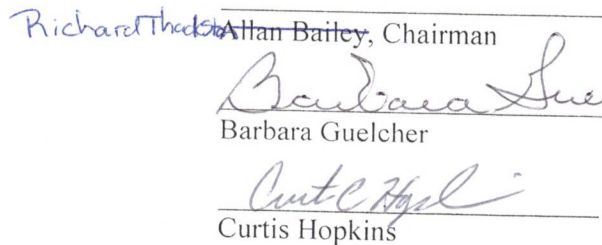 Richard Thackston Allan Bailey, Chairman
Barbara Gue
Barbara Guelcher
Curt C Hopkins
Curtis Hopkins